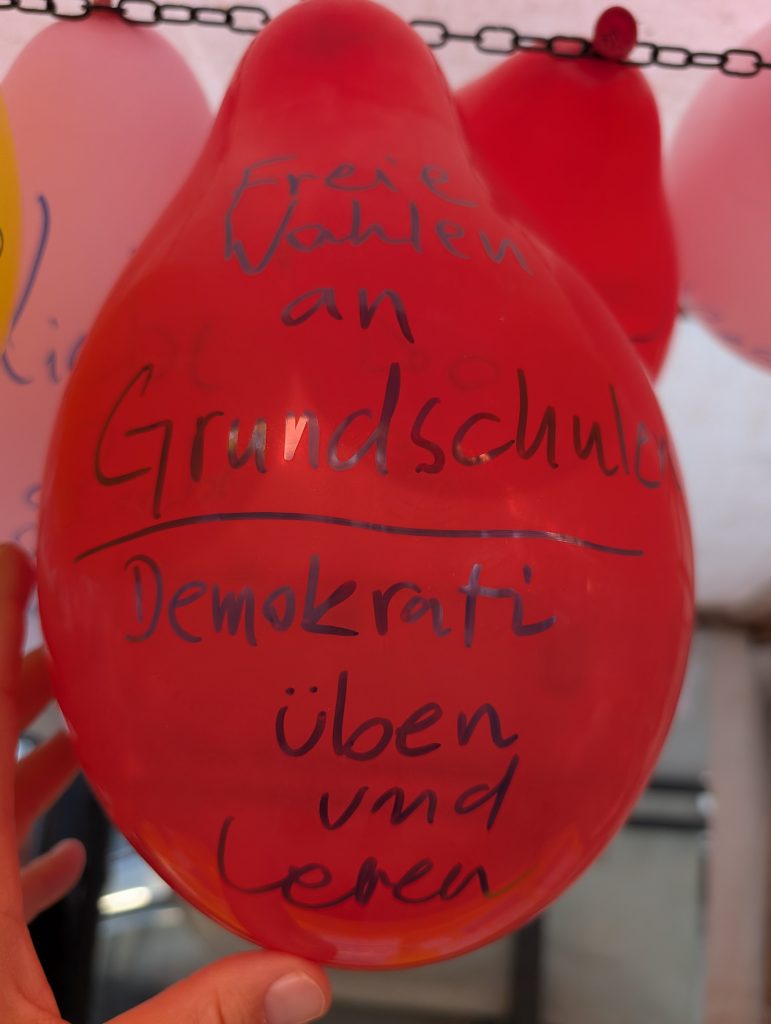 Freie
Wahlen
an
Grundschulen
Demokrati
üben
und
leren